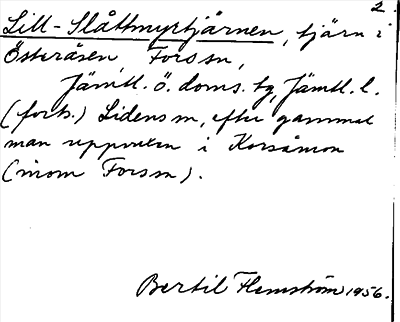 2.
Lill-Slåttmyrtjärnen, tjärn i
Österåsen Fors sn,
Jämtl. ö. doms. tg, Jämtl. l.
(forts.) Lidens sn, efter gammal
man uppväxten i Korsåmon
(inom Fors sn).
Bertil Flemström 1956.